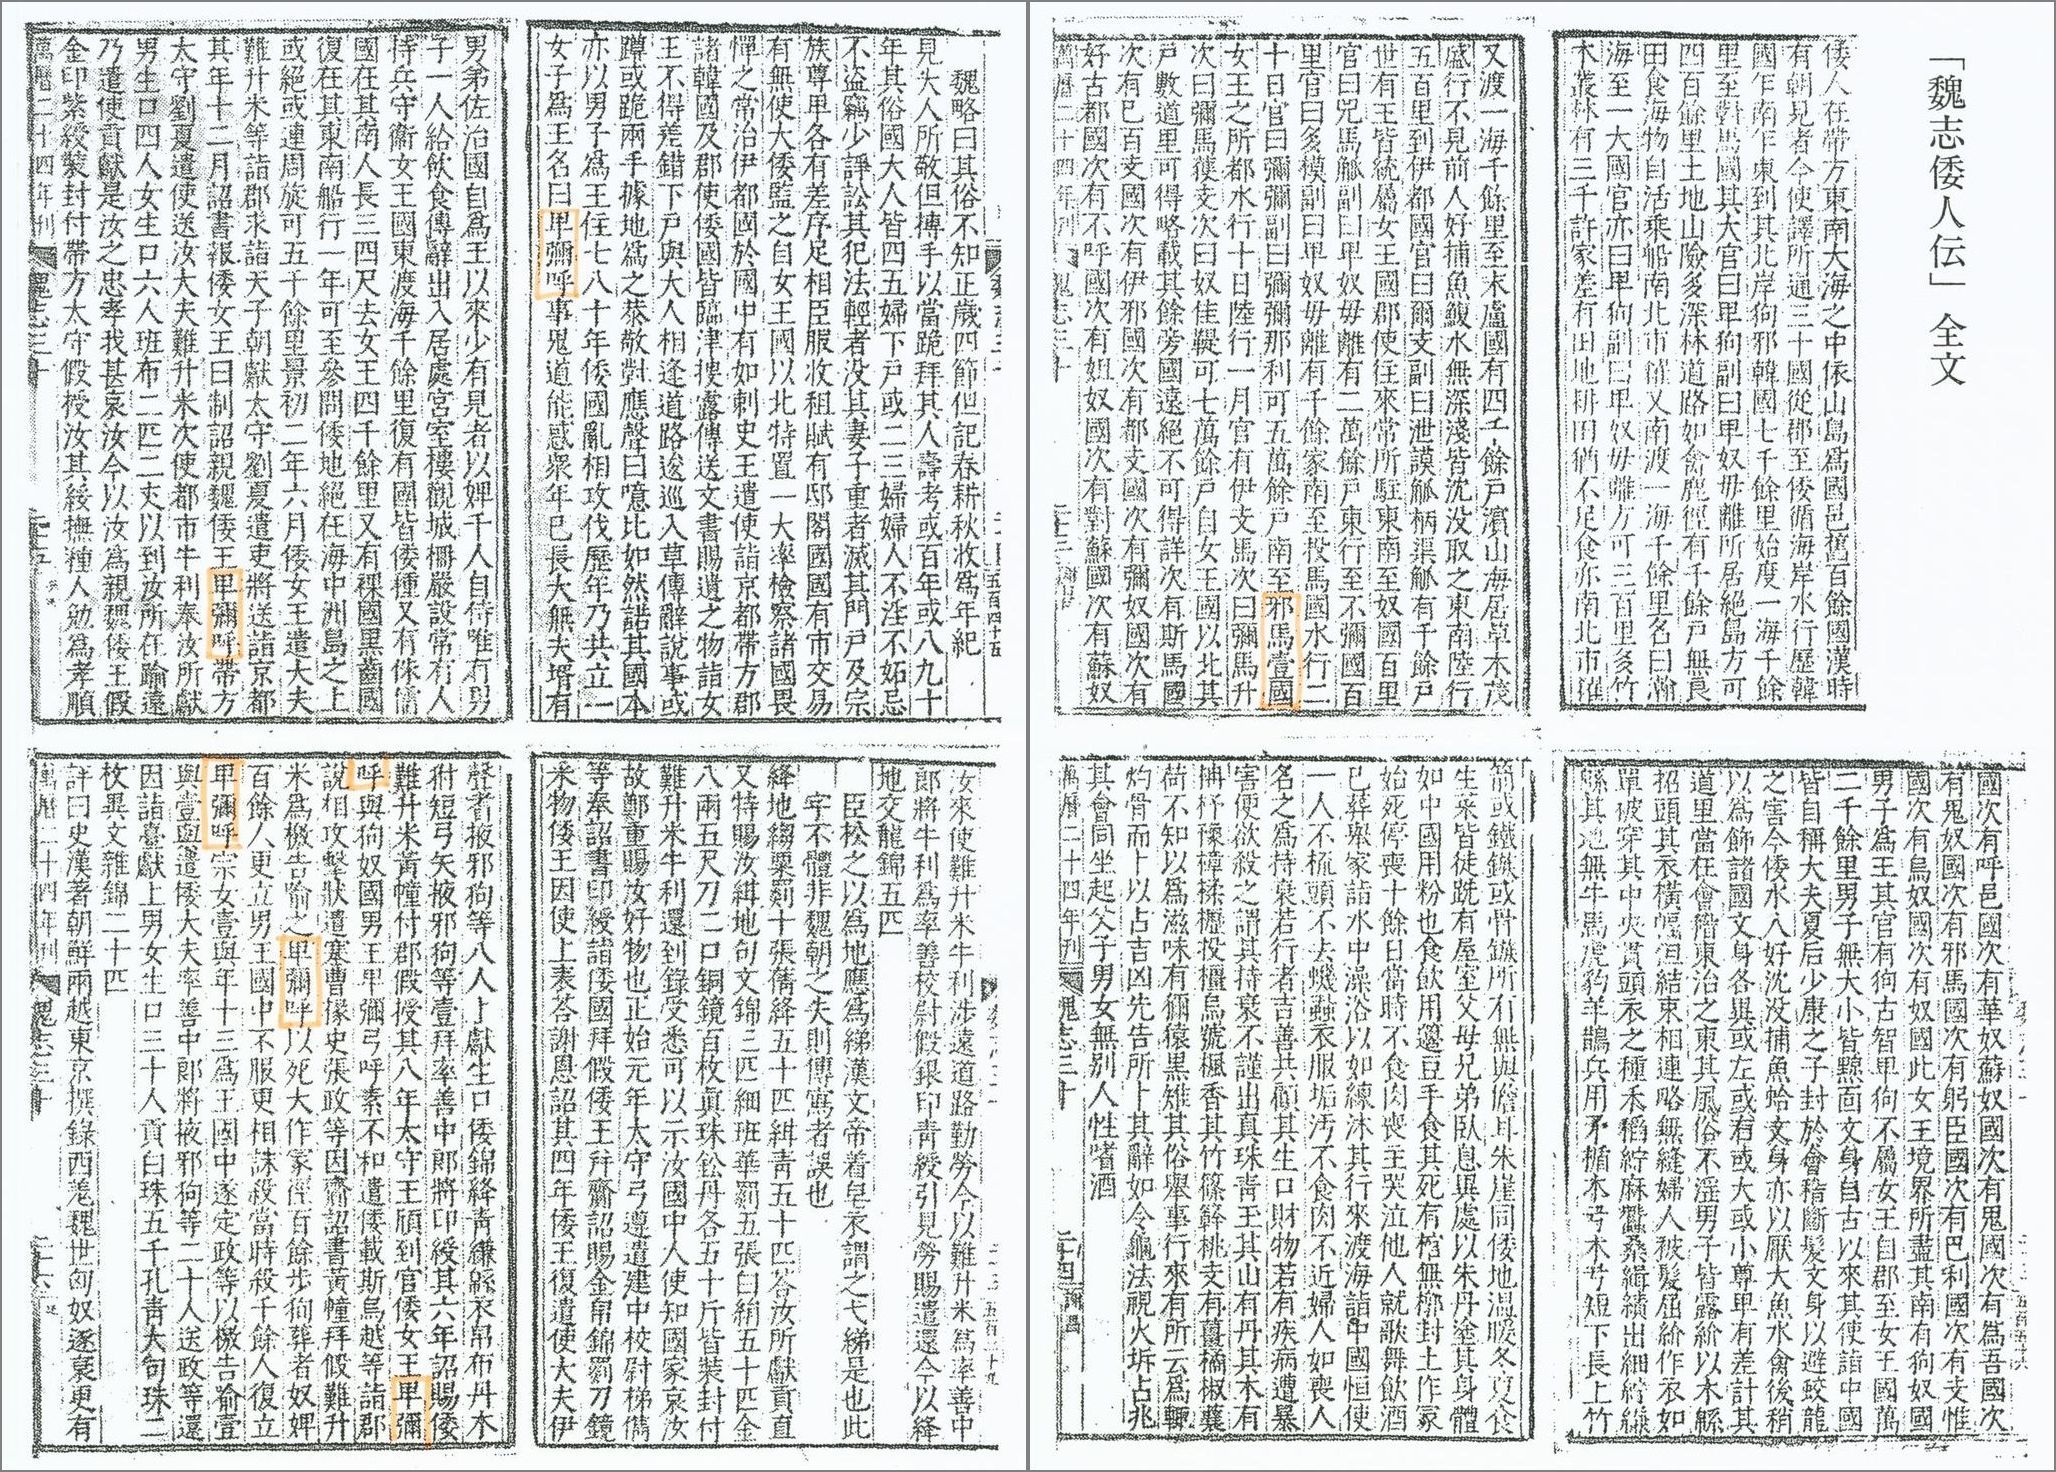 「魏志倭人伝」全文
倭人在帶方東南大海之中依山島爲國邑舊百餘國漢時
有朝見者今使譯所通三十國從郡至倭循海岸水行歷韓
國乍南乍東到其北岸狗邪韓國七千餘里始度一海千餘
里至對馬國其大官曰卑狗副曰卑奴毋離所居絕島方可
四百餘里土地山險多深林道路如禽鹿徑有千餘戶無良
田食海物自活乘船南北市糴又南渡一海千餘里名曰瀚
海至一大國官亦曰卑狗副曰卑奴毋離方可三百里多竹
木叢林有三千許家差有田地耕田猶不足食亦南北市糴
又渡一海千餘里至末盧國有四千餘戶濱山海居草木茂
盛行不見前人好捕魚鰒水無深淺皆沈没取之東南陸行
五百里到伊都國官曰爾支副曰泄謨觚柄渠觚有千餘戶
世有王皆統屬女王國郡使往來常所駐東南至奴國百里
官曰兕馬觚副曰卑奴毋離有二萬餘戶東行至不彌國百
里官曰多模副曰卑奴毋離有千餘家南至投馬國水行二
十日官曰彌彌副曰彌彌那利可五萬餘戶南至邪馬壹國
女王之所都水行十日陸行一月官有伊支馬次曰彌馬升
次曰彌馬獲支次曰奴佳鞮可七萬餘戶自女王國以北其
戶數道里可得略載其餘旁國遠絕不可得詳次有斯馬國
次有已百支國次有伊邪國次有都支國次有彌奴國次有
好古都國次有不呼國次有姐奴國次有對蘇國次有蘇奴
萬曆二十四年刊 魏志三十
國次有呼邑國次有華奴蘇奴國次有鬼國次有爲吾國次
有鬼奴國次有邪馬國次有躬臣國次有巴利國次有支惟
國次有烏奴國次有奴國此女王境界所盡其南有狗奴國
男子爲王其官有狗古智卑狗不屬女王自郡至女王國萬
二千餘里男子無大小皆黥面文身自古以來其使詣中國
皆自稱大夫夏后少康之子封於會稽斷髮文身以避蛟龍
之害今倭水人好沈没捕魚蛤文身亦以厭大魚水禽後稍
以爲飾諸國文身各異或左或右或大或小尊卑有差計其
道里當在會稽東治之東其風俗不淫男子皆露紒以木緜
招頭其衣橫幅但結束相連略無縫婦人被髮屈紒作衣如
單被穿其中央貫頭衣之種禾稻紵麻蠶桑緝績出細紵縑
緜其地無牛馬虎豹羊鵲兵用矛楯木弓木弓短下長上竹
箭或鐵鏃或骨鏃所有無與儋耳朱崖同倭地溫暖冬夏食
生菜皆徒跣有屋室父母兄弟臥息異處以朱丹塗其身體
如中國用粉也食飲用籩豆手食其死有棺無槨封土作冢
始死停喪十餘日當時不食肉喪主哭泣他人就歌舞飲酒
已葬舉家詣水中澡浴以如練沐其行來渡海詣中國恒使
一人不梳頭不去蟣蝨衣服垢污不食肉不近婦人如喪人
名之爲持衰若行者吉善共顧其生口財物若有疾病遭暴
害便欲殺之謂其持衰不謹出真珠青玉其山有丹其木有
柟杼豫樟楺櫪投橿烏號楓香其竹篠簳桃支有薑橘椒蘘
荷不知以爲滋味有獮猿黑雉其俗舉事行來有所云爲輒
灼骨而卜以占吉凶先告所卜其辭如令龜法視火坼占兆
其會同坐起父子男女無別人性嗜酒
萬曆二十四年刊 魏志三十 二十四
魏略曰其俗不知正歲四節但記春耕秋收爲年紀
見大人所敬但搏手以當跪拜其人壽考或百年或八九十
年其俗國大人皆四五婦下戶或二三婦婦人不淫不妬忌
不盜竊少諍訟其犯法輕者没其妻子重者滅其門戶及宗
族尊卑各有差序足相臣服收租賦有邸閣國國有市交易
有無使大倭監之自女王國以北特置一大率檢察諸國畏
憚之常治伊都國於國中有如刺史王遣使詣京都帶方郡
諸韓國及郡使倭國皆臨津搜露傳送文書賜遺之物詣女
王不得差錯下戶與大人相逢道路逡巡入草傳辭說事或
蹲或跪兩手據地爲之恭敬對應聲曰噫比如然諾其國本
亦以男子爲王住七八十年倭國亂相攻伐歷年乃共立一
女子爲王名曰卑彌呼事鬼道能惑衆年已長大無夫壻有
男弟佐治國自爲王以來少有見者以婢千人自侍唯有男
子一人給飲食傳辭出入居處宮室樓觀城柵嚴設常有人
持兵守衞女王國東渡海千餘里復有國皆倭種又有侏儒
國在其南人長三四尺去女王四千餘里又有裸國黑齒國
復在其東南船行一年可至參問倭地絕在海中洲島之上
或絕或連周旋可五千餘里景初二年六月倭女王遣大夫
難升米等詣郡求詣天子朝獻太守劉夏遣吏將送詣京都
其年十二月詔書報倭女王曰制詔親魏倭王卑彌呼帶方
太守劉夏遣使送汝大夫難升米次使都市牛利奉汝所獻
男生口四人女生口六人班布二匹二丈以到汝所在踰遠
乃遣使貢獻是汝之忠孝我甚哀汝今以汝爲親魏倭王假
金印紫綬裝封付帶方太守假授汝其綏撫種人勉爲孝順
萬曆二十四年刊 魏志三十 二十五
汝來使難升米牛利涉遠道路勤勞今以難升米爲率善中
郎將牛利爲率善校尉假銀印青綬引見勞賜遣還今以絳
地交龍錦五匹
臣松之以爲地應爲綈漢文帝著皁衣謂之弋綈是也此
字不體非魏朝之失則傳寫者誤也
絳地縐粟罽十張蒨絳五十匹紺青五十匹答汝所獻貢直
又特賜汝紺地句文錦三匹細班華罽五張白絹五十匹金
八兩五尺刀二口銅鏡百枚真珠鈆丹各五十斤皆裝封付
難升米牛利還到錄受悉可以示汝國中人使知國家哀汝
故鄭重賜汝好物也正始元年太守弓遵遣建中校尉梯儁
等奉詔書印綬詣倭國拜假倭王并齎詔賜金帛錦罽刀鏡
采物倭王因使上表答謝恩詔其四年倭王復遣使大夫伊
聲耆掖邪狗等八人上獻生口倭錦絳青縑緜衣帛布丹木
𤝔短弓矢掖邪狗等壹拜率善中郎將印綬其六年詔賜倭
難升米黃幢付郡假授其八年太守王頎到官倭女王卑彌
呼與狗奴國男王卑彌弓呼素不和遣倭載斯烏越等詣郡
說相攻擊狀遣塞曹掾史張政等因齎詔書黃幢拜假難升
米爲檄告喻之卑彌呼以死大作冢徑百餘步徇葬者奴婢
百餘人更立男王國中不服更相誅殺當時殺千餘人復立
卑彌呼宗女壹與年十三爲王國中遂定政等以檄告喻壹
與壹與遣倭大夫率善中郎將掖邪狗等二十人送政等還
因詣臺獻上男女生口三十人貢白珠五千孔青大句珠二
枚異文雜錦二十匹
評曰史漢著朝鮮兩越東京撰錄西羗魏世匈奴遂衰更有
萬曆二十四年刊 魏志三十 二十六